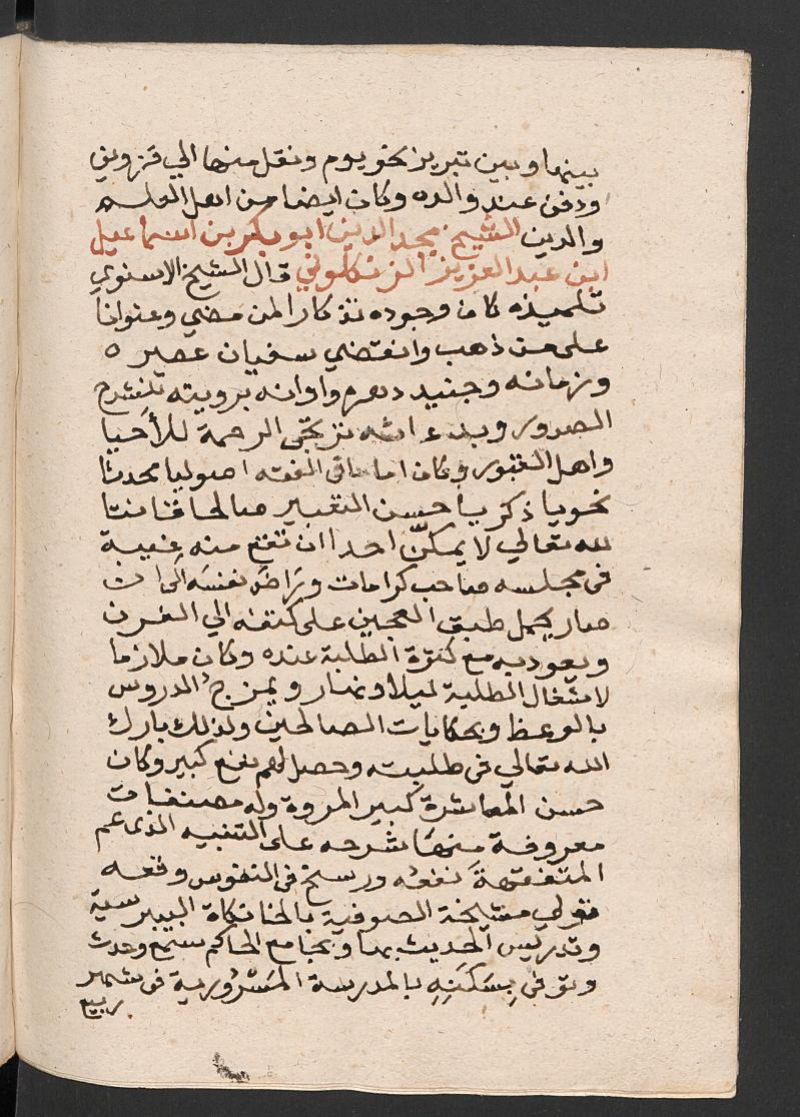 بينها وبين تبريز نحو يوم ونقل منها الي قزوين
ودفن عند والده وكان ايضا من اهل العلم
والدين الشيخ مجد الدين ابو بكر بن اسماعيل
ابن عبد العزيز الزنكلوني قال الشيخ الاسنوي
تلميذه كان وجوده تذكارا لمن مضي وعنوانا
على من ذهب وانقضي سفيان عصره
وزمانه وجنيد دهره واوانه برويته تنشرح
الصدور وبدعائه ترتجى الرحمة للأحيا
واهل القبور وكان اماما فى الفقه اصوليا محدثا
نحويا ذكريا حسن التعبير صالحا قانتا
لله تعالي لا يمكّن احدا ان تقع منه غيبة
فى مجلسه صاحب كرامات ورَاضَ نفسَه الى ان
صار يحمل طبق العجين على كتفه الي الفرن
ويعود به مع كثرة الطلبة عنده وكان ملازما
لاشغال الطلبة ليلا ونهار ويمزج الدروس
بالوعظ وبحكايات الصالحين ولذلك بارك
الله تعالي فى طلبته وحصل لهم نفع كبير وكان
حسن المعاشرة كبير المروة وله مصنفات
معروفة منها شرحه على التنبيه الذى عم
المتفقهةَ نفعُه ورسخ فى النفوس وقعه
تولي مشيخة الصوفية بالخانكاة البيبرسية
وتدريس الحديث بها وبجامع الحاكم سمع وحدث
وتوفى بِسَكَنِهِ بالمدرسة المَسْرُورية فى شهر
ربيع